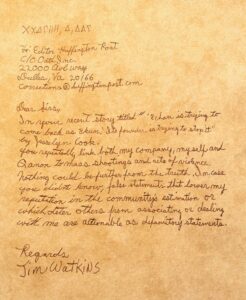 To: Editor Huffington Post
C/O Oath Inc.
22000 AOL Way
Dulles, Va 20166
corrections@huffingtonpost.com
Dear Sirs,
In your recent story titled "8chan is trying to
come back as 8kun. Its founder is trying to stop it"
by Jesselyn Cook.
You repeatedly link both my company, my self and
Qanon to mass shootings and acts of violence.
Nothing could be further from the truth. In case
you didn't know, false statements that lower my
reputation in the community's estimation or
which deter others from associating or dealing
with me are actionable as defamatory statements.
Regards
Jim Watkins